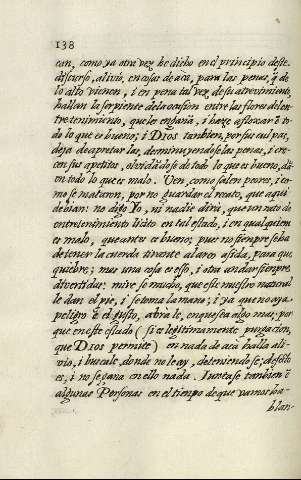 138
can, como ya otra vez he dicho en el principio deste
discurso, alivio, en cosas de acà, para las penas, q̃ de
lo alto vienen, i en pena tal vez, de su atrevimiento,
hallan la serpiente de la ocasion entre las flores del en-
tretenimiento, que les engaña, i haze aflorxar ẽ to-
do lo que es bueno; i DIOS tambien, por sus culpas,
deja de apretarlas, deminuyendoseles las penas, i cre-
cen sus apetitos, olvidãdose de todo lo que es bueno, dã
en todo lo que es malo. Ven, como salen peores, i co-
mo se maturon, por no guardar el recato, que aqui
devian: no digo Io, ni nadie dirà, que un rato de
entretenimiento licito en tal estado, i en qualquiera
es malo, que antes es bueno; pues no siempre se ha
de tener la cuerda tirante al arco asida, para que
quiebre; mas una cosa es esso, i otra andar siempre
divertidas: mire se mucho, que este nuestro natural
le dan el pie, i se toma la mano; i ya que no aya
peligro ẽ el gusto, abrà le, en que sea algo mas; por
que en este estado ( si es legitimamente purgacion,
que DIOS permite ) en nada de acà halla ali-
vio, i buscale, donde no le ay, deteniendose; defeto
es, i no se gana en ello nada. Iuntase tambien ẽ
algunas Personas en el tiempo de que vamos ha-
blan-